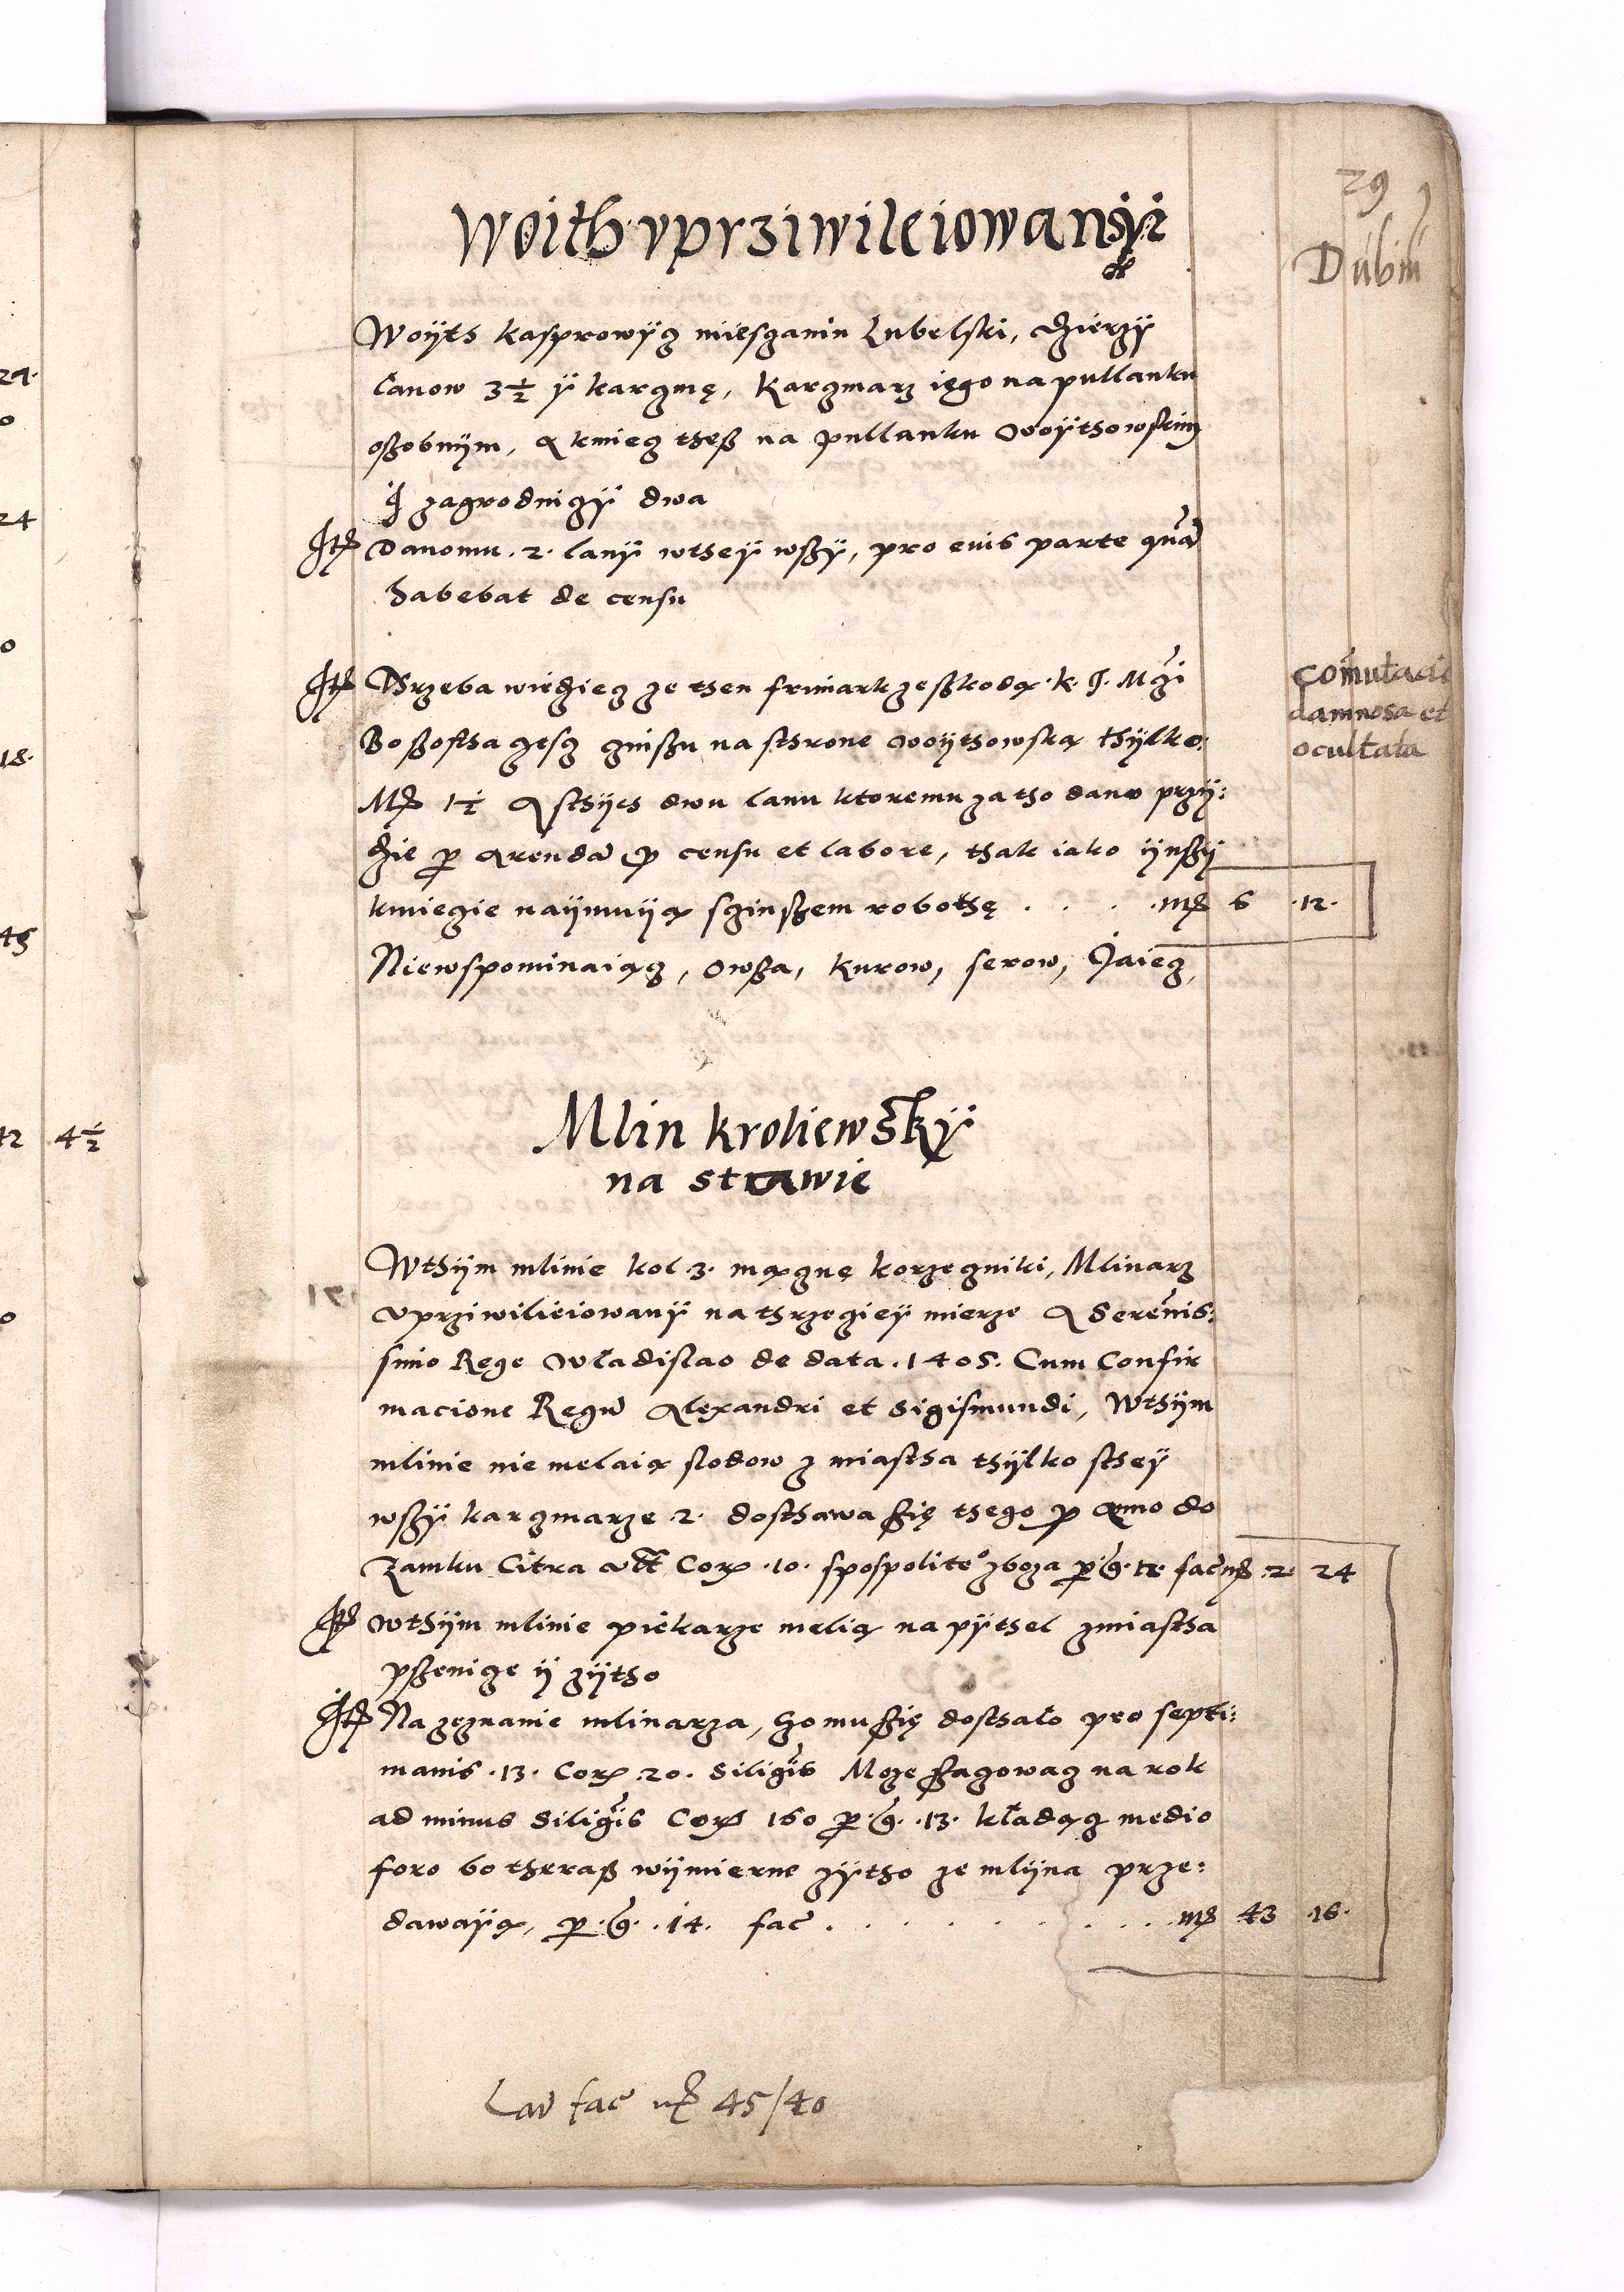 29
Dubiu
Woith uprziwileiowanÿ
Woÿth kasprowÿcz miesczanin Lubelski, dzierzÿ
łanow 3 ½ ÿ karczmę, karczmarz iego na pullanku
oszobnÿm, A kmiecz thesz na pullanku Woÿthowskim
Ÿ zagrodniczÿ dwa
Itē Danomu .2. lanÿ wtheÿ wszÿ, pro euis parte quā
habebat de censu
Itē Thrzeba wiedziecz ze then frimark zeszkodą K. J. Mczi
Boszostha gesch czinszu na sthronę Woÿthowską thÿlko
Mẹ 1 ½ A sthÿch dwu lanu ktoremu za tho dano przÿ:
dzie p Arendā p censu et labore, thak iako ÿnszÿ
kmiecie naÿmuÿą sczinszem robothę . . . . mẹ 6 .12.
Niewspominaiącz, Owsza, kurow, serow, Jaiecz,
comutacio
damnosa et
ocultata
Mlin kroliewskÿ
na strawie
Wthÿm mlinie kol .3. mączne korzeczniki, Mlinarz
Uprziwilieiowanÿ na thrzecieÿ mierze A Serenis:
simo Rege Władislao de data .1405. Cum Confir
macione Regū Alexandri et Sigismundi, Wthÿm
mlinie nie melaią slodow z miastha thÿlko stheÿ
wszÿ karczmarze 2. dosthawa szię thego p Anno do
Zamku Citra Cor .10. spospolite° zboza p g. 12 fac mẹ .2. 24
Itē Wthÿm mlinie piekarze melią na pÿthel zmiastha
pszenicze ÿ zÿtho
Itē Na zeznanie mlinarza, czo mu szię dosthało pro septi:
manis .13. Cor .20. Siligis Moze szaczowacz na rok
ad minus Siligis Cor 160 p g. .13. kładącz medio
foro bo therasz wÿmierne zÿtho ze mlÿna prze:
dawaÿą, p g. .14. fac . . . . . . . . . mẹ 43 .16.
Lat fac mẹ 45/40